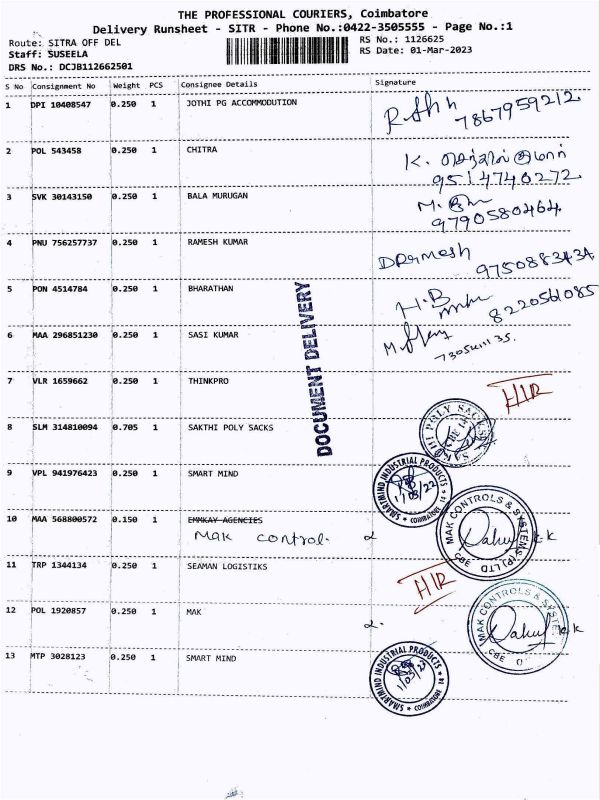 THE PROFESSIONAL COURIERS, Coimbatore
Delivery Runsheet - SITR - Phone No.:0422-3505555 - Page No.:1
Route: SITRA OFF DEL
RS No.: 1126625
Staff: SUSEELA
RS Date: 01-Mar-2023
DRS No.: DCJB112662501
S No Consignment No Weight PCS Consignee Details Signature
1 DPI 10408547 0.250 1 JOTHI PG ACCOMMODUTION
7867959212
2 POL 543458 0.250 1 CHITRA
K. செந்தில் குமார்
9514740272
3 SVK 30143150 0.250 1 BALA MURUGAN
9790580464
4 PNU 756257737 0.250 1 RAMESH KUMAR
DRamesh
9750883434
5 PON 4514784 0.250 1 BHARATHAN
H.B
8220561085
6 MAA 296851230 0.250 1 SASI KUMAR
DOCUMENT DELIVERY
7 VLR 1659662 0.250 1 THINKPRO
8 SLM 314810094 0.705 1 SAKTHI POLY SACKS
SAKTHI POLY SACKS
9 VPL 941976423 0.250 1 SMART MIND
SMARTMIND INDUSTRIAL PRODUCTS
COIMBATORE 14
1/03/22
10 MAA 568800572 0.150 1 EMMKAY AGENCIES
Mak control.
MAK CONTROLS & SYSTEMS (P) LTD
CBE
11 TRP 1344134 0.250 1 SEAMAN LOGISTIKS
12 POL 1920857 0.250 1 MAK
MAK CONTROLS & SYSTEM
CBE
13 MTP 3028123 0.250 1 SMART MIND
SMARTMIND INDUSTRIAL PRODUCTS
COIMBATORE 14